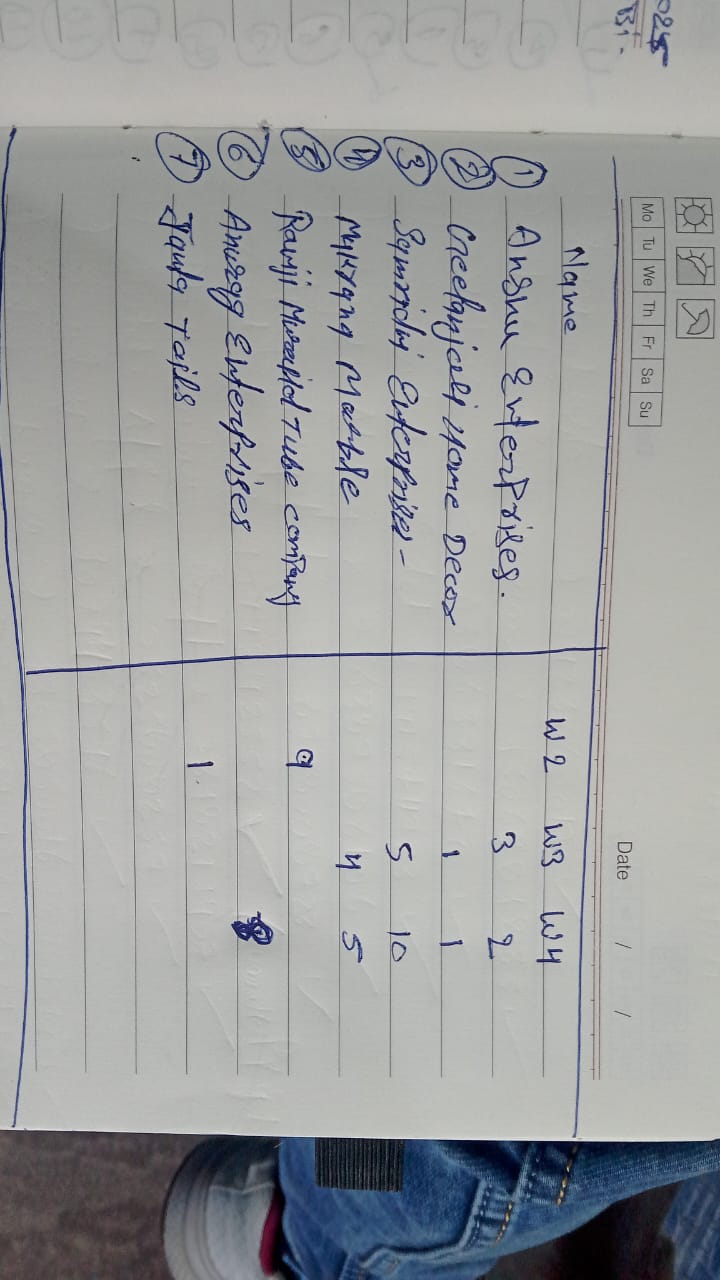 025
Mo Tu We Th Fr Sa Su
Date / /
Name W2 W3 W4
1 Anshu Enterprises. 3 2
2 Geetanjali Home Decor 1 1
3 Samridhi Enterprises - 5 10
4 Makrana Marble 4 5
5 Ramji Tube company 9
6 Anurag Enterprises 8
7 Janta Tails 1